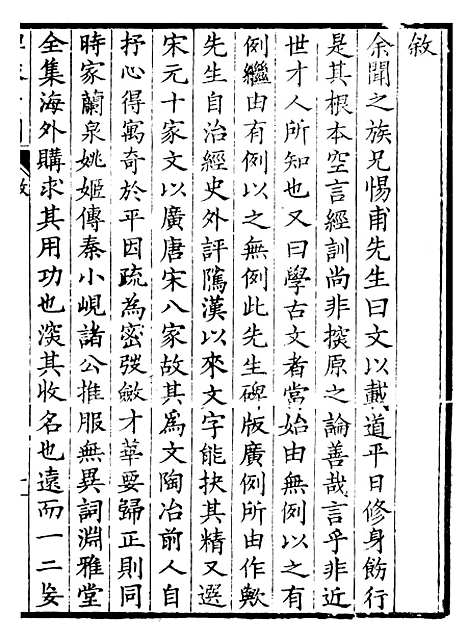 敘
余聞之族兄惕甫先生曰文以載道平日修身飭行
是其根本空言經訓尚非揆原之論善哉言乎非近
世才人所知也又曰學古文者當始由無例以之有
例繼由有例以之無例此先生碑版廣例所由作歟
先生自治經史外評隲漢以來文字能抉其精又選
宋元十家文以廣唐宋八家故其為文陶冶前人自
抒心得寓奇於平因疏為密弢斂才華要歸正則同
時家蘭泉姚姬傳秦小峴諸公推服無異詞淵雅堂
全集海外購求其用功也深其收名也遠而一二妄